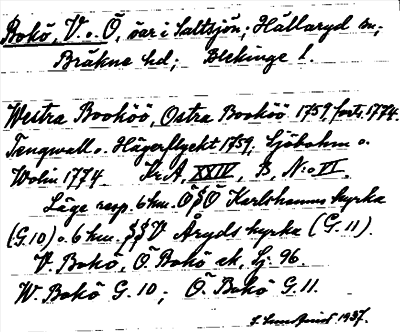 Bokö, V. o. Ö, öar i Saltsjön; Hällaryd sn;
Bräkne hd; Blekinge l.
Westra Booköö, Ostra Booköö 1759, forts. 1774.
Tengwall o. Hägerflyckt 1759; Sjöbohm o.
Wolin 1774. Kr. A, XXIV, B, N:o VI.
Läge resp. 6 km. ÖSÖ Karlshamns kyrka
(G. 10) o. 6 km. SSV Åryds kyrka (G. 11).
V. Bokö, Ö. Bokö ek. bl. 96.
W. Bokö G. 10; Ö. Bokö G. 11.
1937.